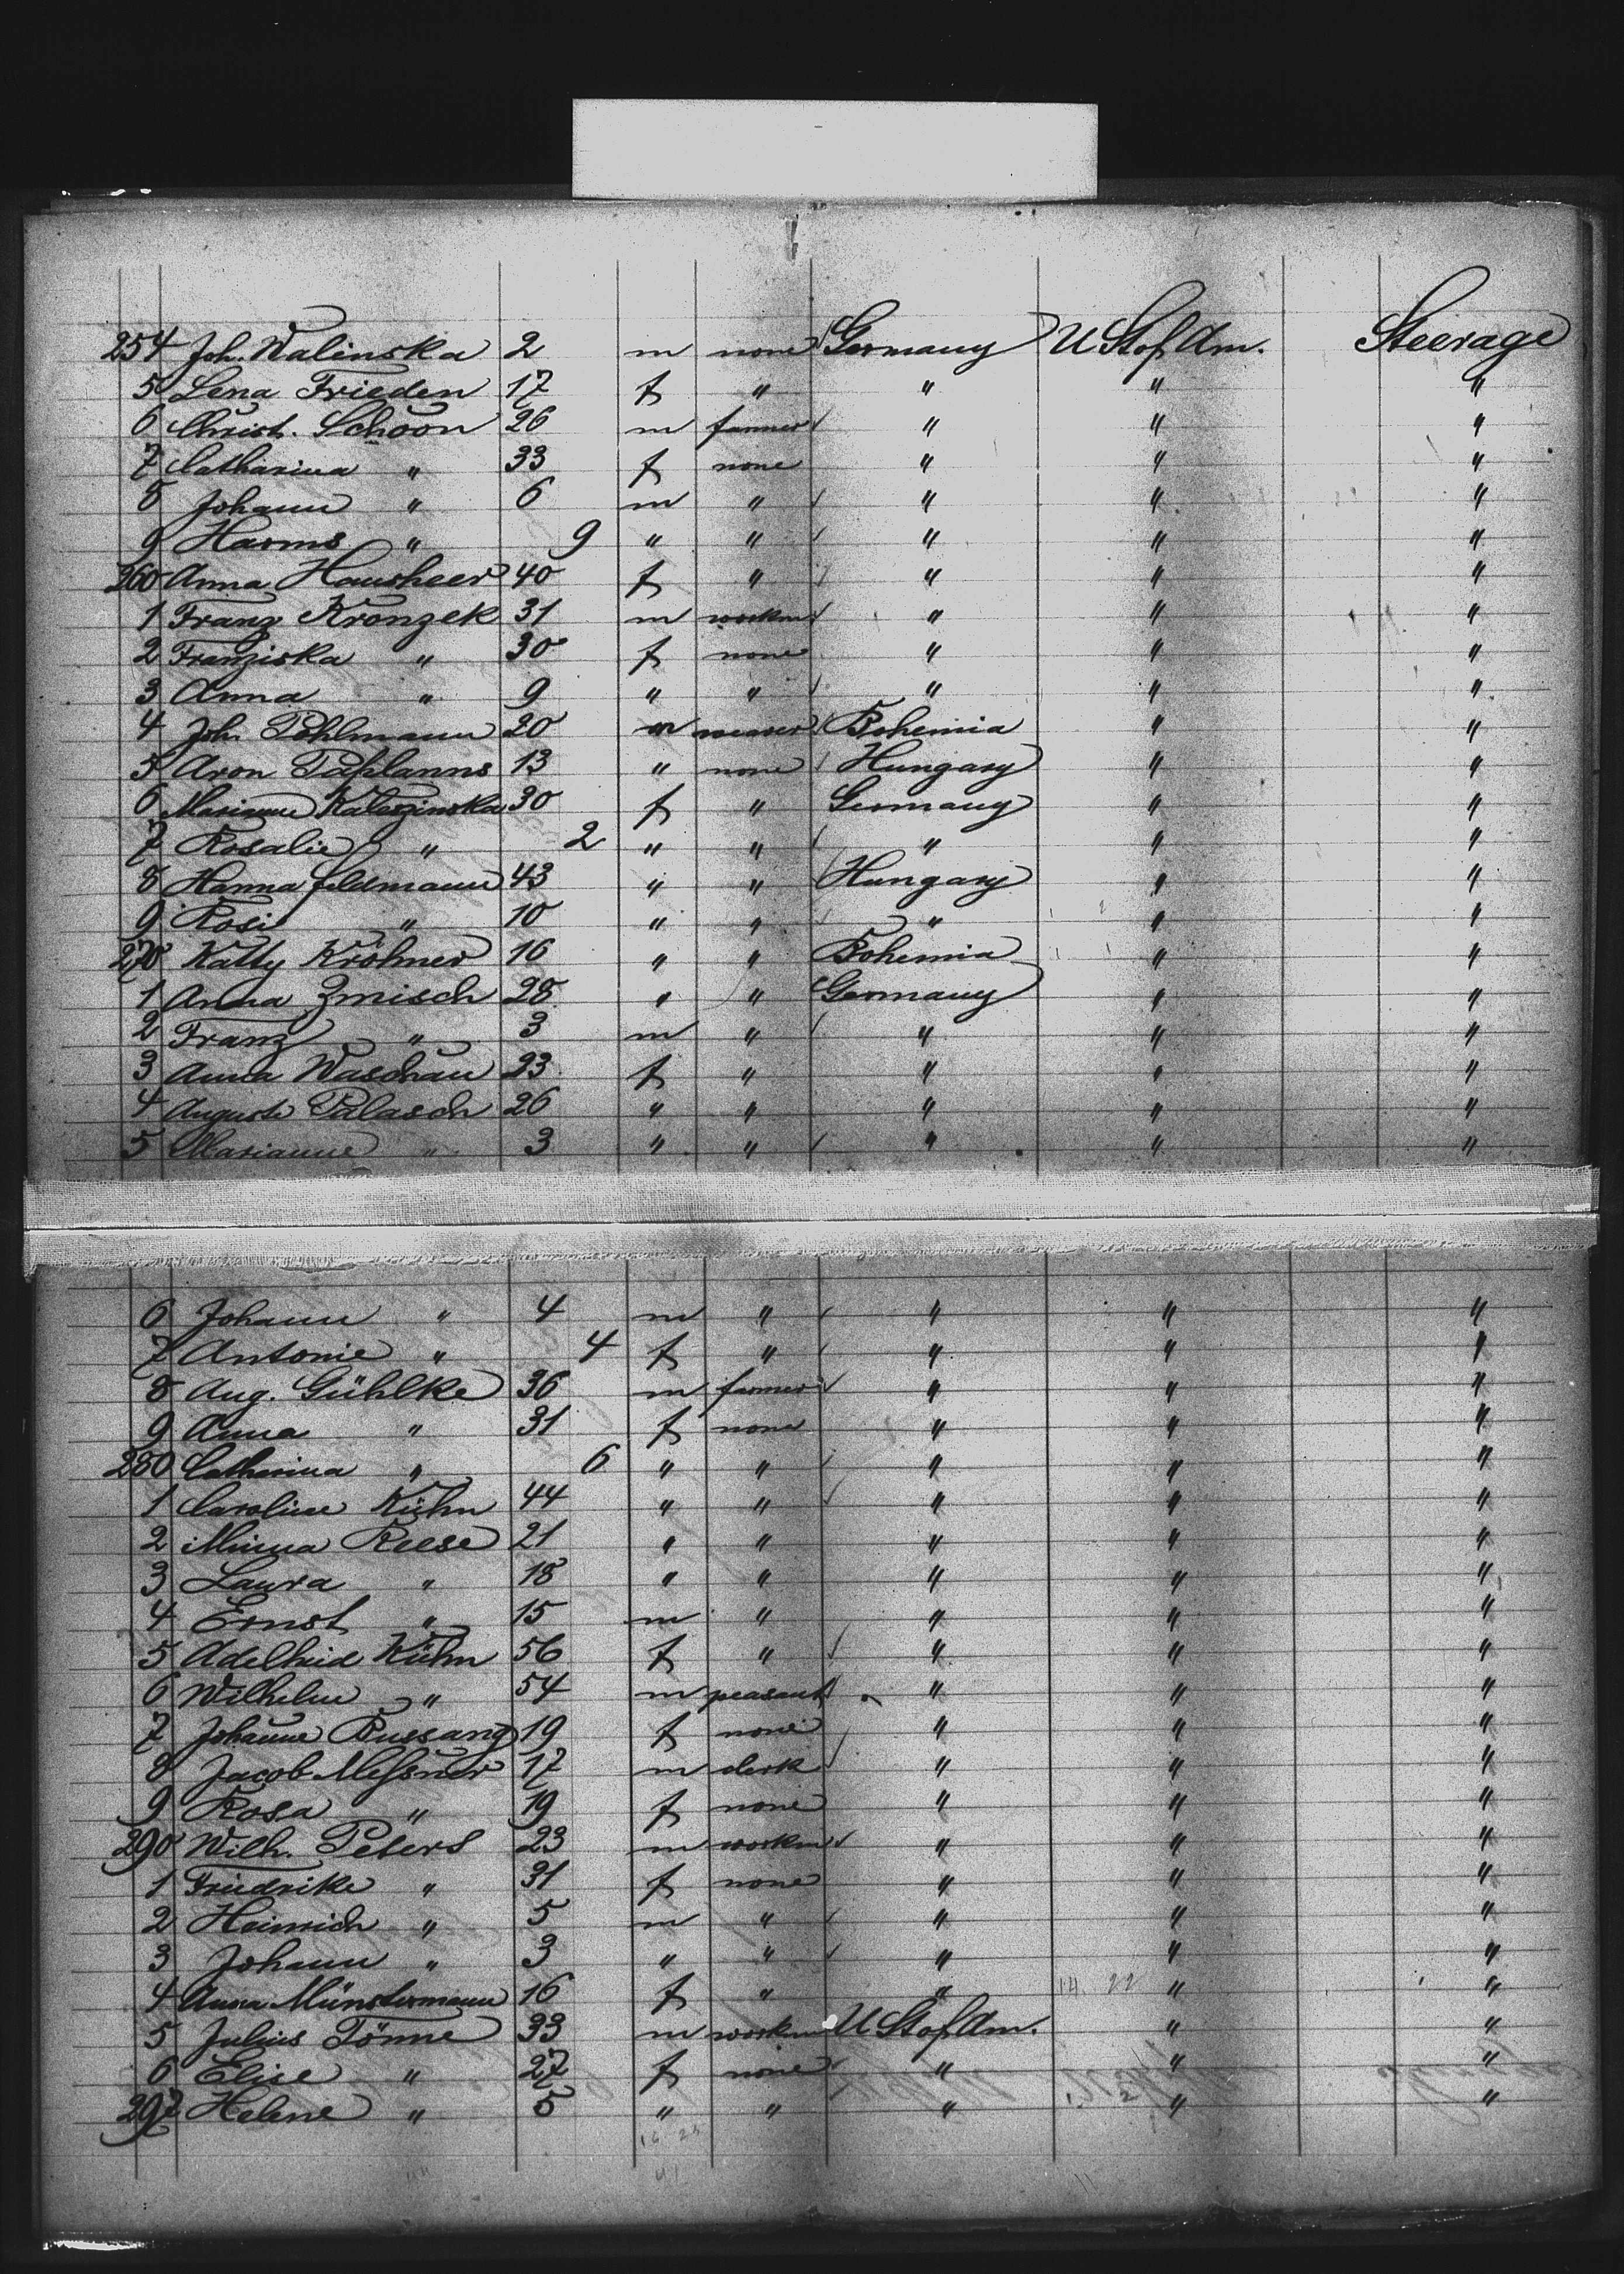 254 Joh. Walinska 2 m none Germany U St of Am. Steerage
5 Lena Frieden 17 f " " " "
6 Christ. Schoon 26 m farmer " " "
7 Catharina " 33 f none " " "
8 Johann " 6 m " " " "
9 Harms " 9 " " " " "
260 Anna Hausheer 40 f " " " "
1 Franz Kronzek 31 m workm " " "
2 Franziska " 30 f none " " "
3 Anna " 9 " " " " "
4 Joh. Pohlmann 20 m weaver Bohemia " "
5 Aron 13 " none Hungary " "
6 Marianne 30 f " Germany " "
7 Rosalie " 2 " " " " "
8 Hanna Feldmann 43 " " Hungary " "
9 Rosi " 10 " " " " "
270 Katty Kröhner 16 " " Bohemia " "
1 Anna Zmisch 28 " " Germany " "
2 Franz " 3 m " " " "
3 Anna Waschau 23 f " " " "
4 Auguste Palasch 26 " " " " "
5 Marianne " 3 " " " " "
6 Johann " 4 m " " " "
7 Antonie " 4 f " " " "
8 Aug. Gühlke 36 m farmer " " "
9 Anna " 31 f none " " "
280 Catharina " 6 " " " " "
1 Caroline Kühn 44 " " " " "
2 Minna Reese 21 " " " " "
3 Laura " 18 " " " " "
4 Ernst " 15 m " " " "
5 Adelheid Kühn 56 f " " " "
6 Wilhelm " 54 m peasant " " "
7 Johanne Bussang 19 f none " " "
8 Jacob Meßner 17 m clerk " " "
9 Rosa " 19 f none " " "
290 Wilh. Peters 23 m workm " " "
1 Friedrike " 31 f none " " "
2 Heinrich " 5 m " " " "
3 Johann " 3 " " " " "
4 Anna Münstermann 16 f " " " "
5 Julius Tönne 33 m workm U St of Am. " "
6 Elise " 27 f none " " "
297 Helene " 5 " " " " "